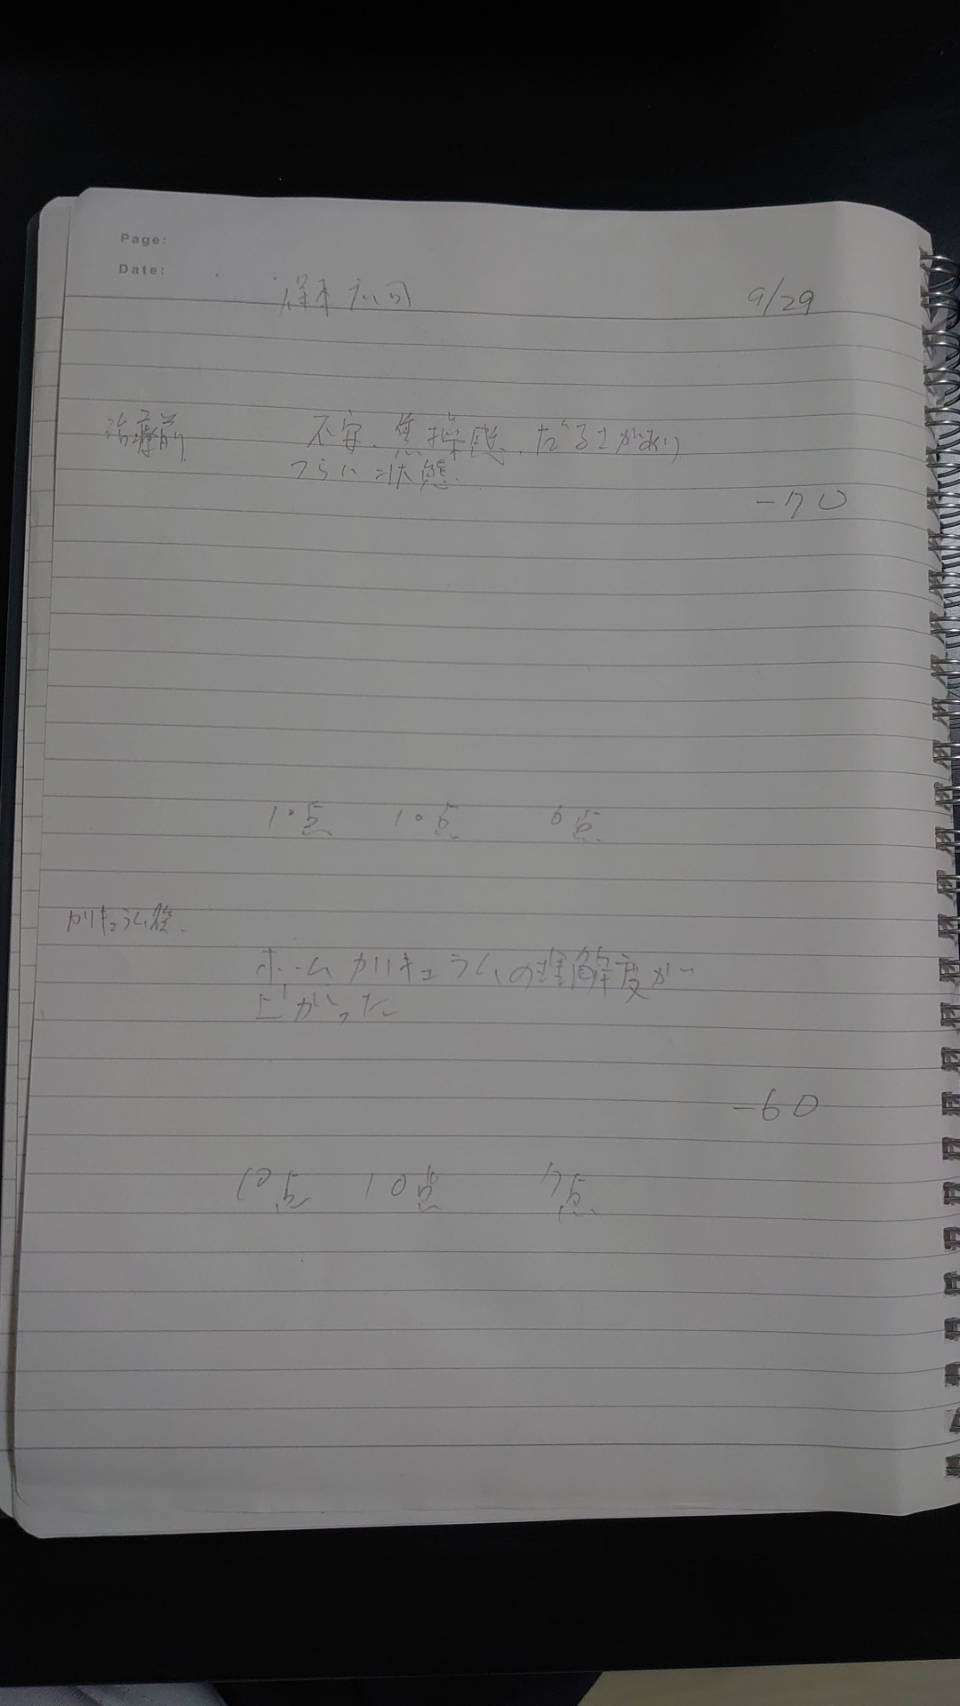 Page:
Date:
9/29
治療前 不安、焦燥感、だるさがあり
つらい状態
-70
10点 10点 6点
カリキュラム後
ホームカリキュラムの理解度が
上がった
-60
10点 10点 7点